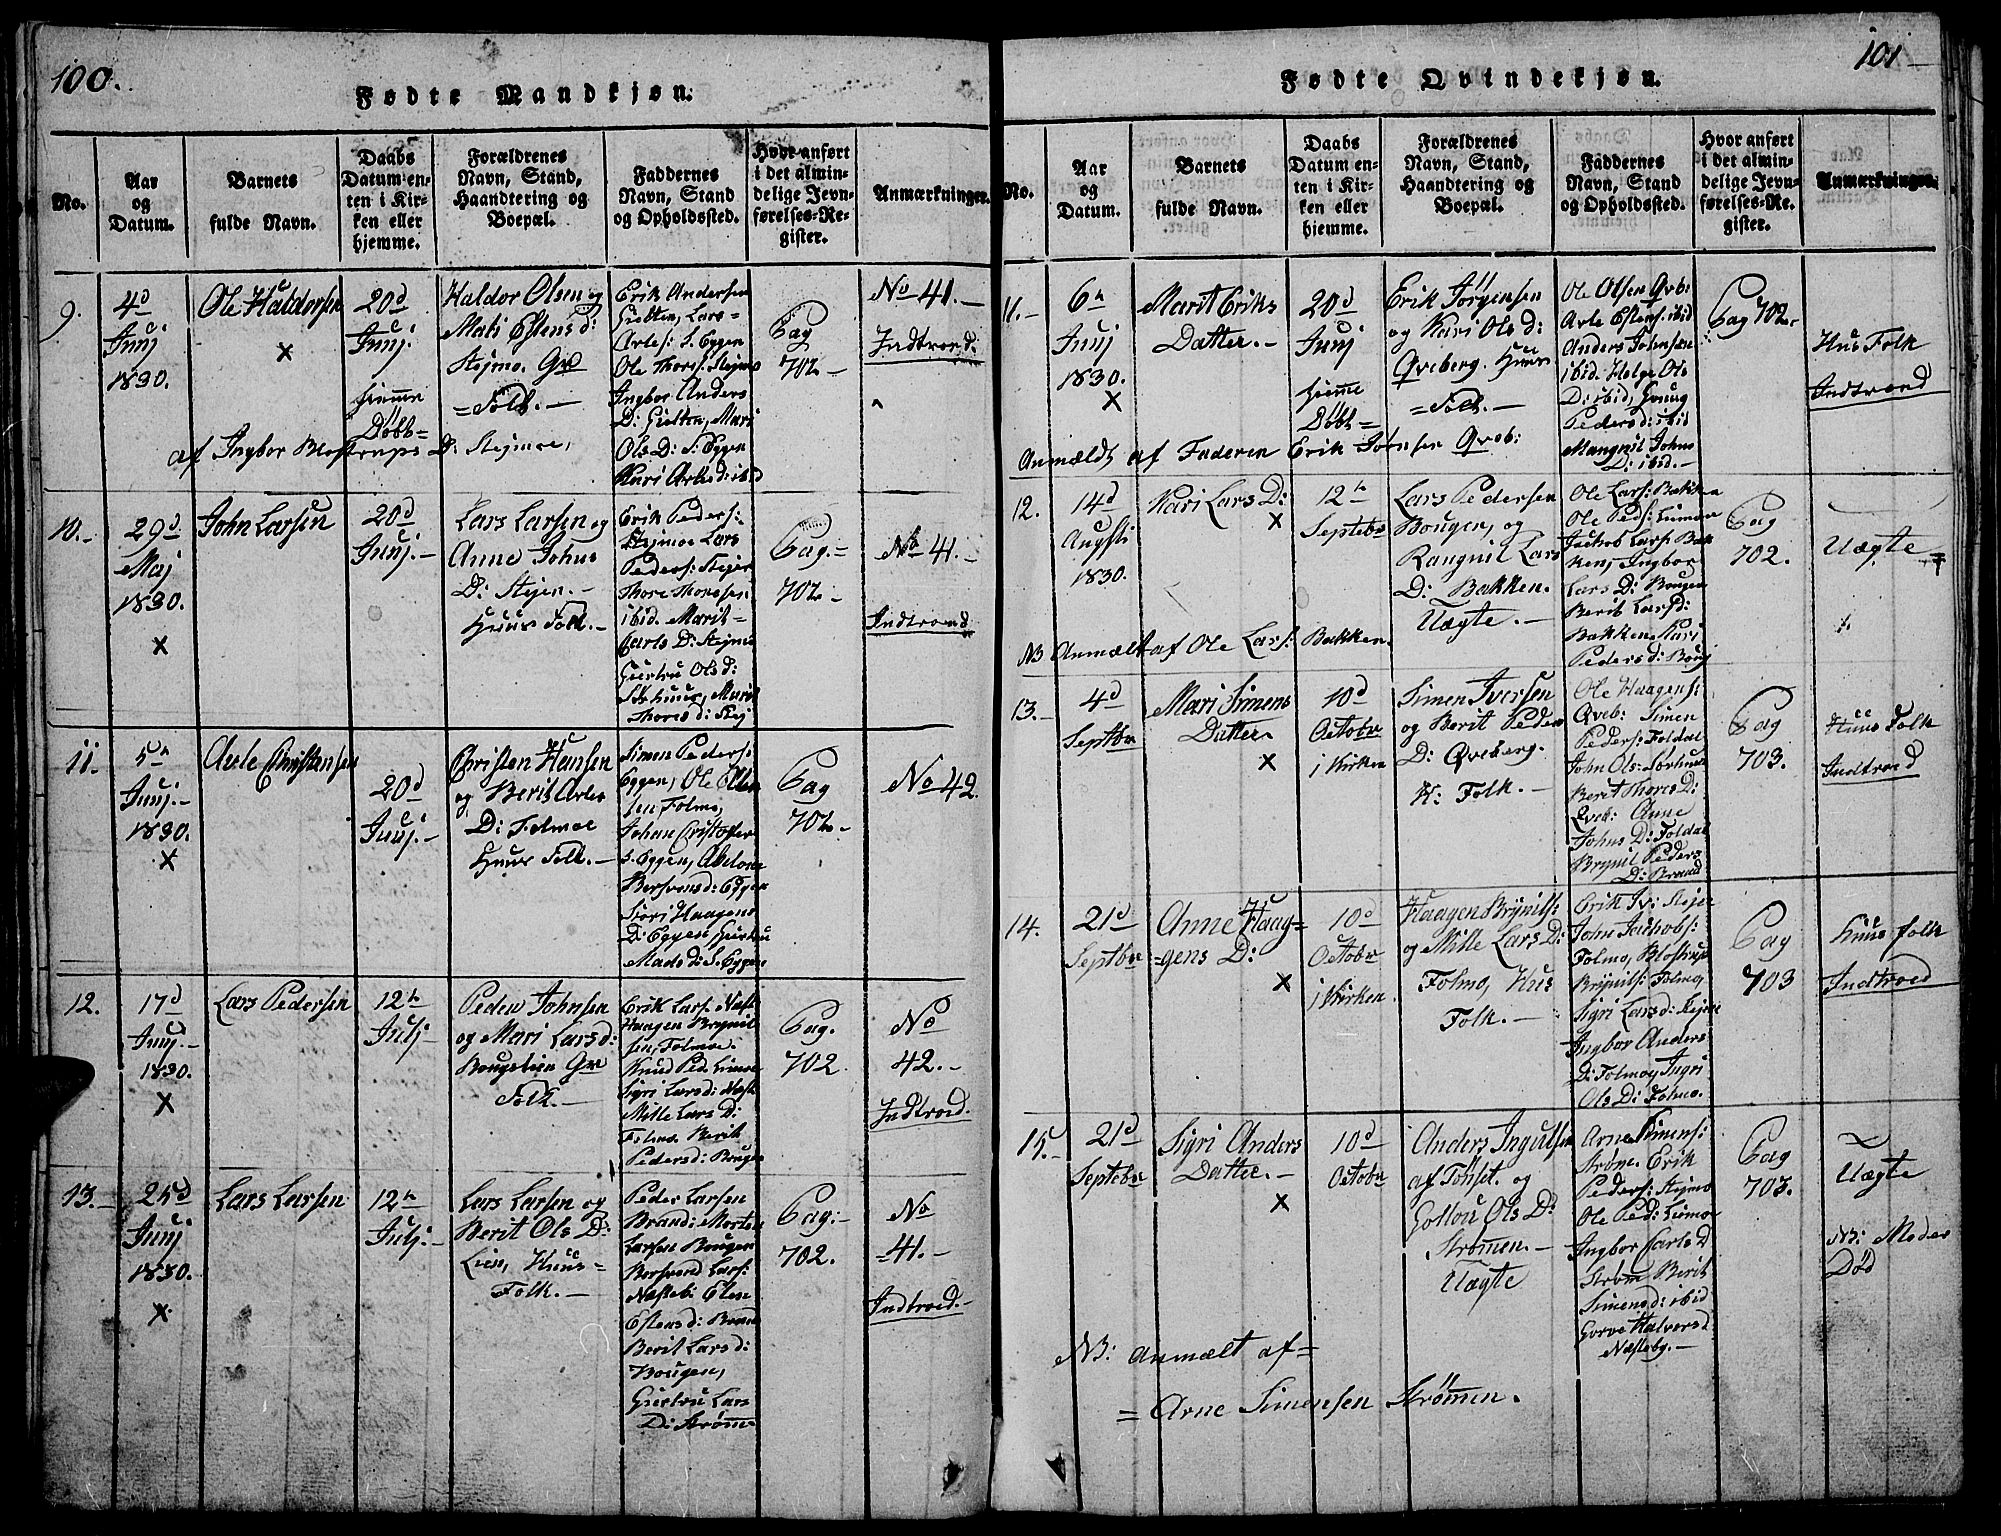 100.
Fødte Mandkjøn.
No.
Aar
og
Datum.
Barnets
fulde Navn.
Daabs
Datum en-
ten i Kir-
ken eller
hjemme.
Forældrenes
Navn, Stand,
Haandtering og
Boepæl.
Faddernes
Navn, Stand
og Opholdssted.
Hvor anført
i det almin-
delige Jevn-
førelses-Re-
gister.
Anmærkninger.
9.
4d
Junj
1830.
×
Ole Haldorsen
20d
Junj.
hiemme
Døbt=
Haldor Olsen og
Mali Estens d:
Stejmo. Grd
=Folk.—
Erik Andersen
Lars=
Arles: S. Eggen
Ole Thores: Stejmo
Ingbor Anders
D: Mari
Ols D: S. Eggen
Kari Arles d: ibid
Pag
702—
No 41.—
Indtroed:
af Ingbor Blostrups D: Stejmoe,
10.—
29d
Maj
1830.
×
John Larsen
20d
Junj.—
Lars Larsen og
Anne Johns
D: Stejen.—
Huus Folk.—
Erik Peders:
Stejmoe Lars
Peders: Stejer
Thore Thoresen
ibid. Marit=
Carls D: Stejmo
Giertru Ols d:
Marit
Thores d: Stej
Pag.=
702—
No 41.—
Indtroed
11.
5h
Junj.—
1830.
×
Arle Christensen
20d
Junj.—
Christen Hansen
og Berit Arles
D: Folmoe
Huus Folk.—
Simen Peders:
Eggen, Ole Olen
sen Folmo,
Johan Cristofer
S. Eggen, Abelone
Bersvens d: Eggen
Siøri Haagens
D: Eggen Giertru
Mads d: S. Eggen
Pag
702—
No 42.
12.
17d
Junj.—
1830.
×
Lars Pedersen
12te
Julj—
Peder Johnsen
og Mari Lars d:
Bougstien Grd
Folk.—
Erik Lars: Næst
Haagen Brynil
sen, Folmoe.
Knud Ped. Limoe
Sigri Lars d: Næst
Mille Lars D:
Folmo. Berit
Peders d: Bougen
Pag.
702
No
42.—
Indtroed.
13.—
25d
Junj
1830.
×
Lars Larsen
12te
Julj.—
Lars Larsen og
Berit Ols D:
Lien, Huus=
Folk.—
Peder Larsen
Brand: Morten
Larsen Bougen
Bersvend Lars:
Næsteb: Elen
Estens d: Brand
Berit Lars d:
Bougen,
Giertru Lars
D: Strømm=
Pag:—
702.
No
41.—
Indtroed.—
101
Fødte Qvindekjøn.
No.
Aar
og
Datum.
Barnets
fulde Navn.
Daabs
Datum en-
ten i Kir-
ken eller
hjemme.
Forældrenes
Navn, Stand,
Haandtering og
Boepæl.
Faddernes
Navn, Stand
og Opholdssted.
Hvor anført
i det almin-
delige Jevn-
førelses-Re-
gister.
Anmærkninger.
11.—
6h
Junj
1830.
×
Marit Eriks
Datter.—
20d
Junj
hiemme
Døbt=
Erik Jørgensen
og Kari Ols d:
Qveberg. Huus
=Folk.—
Ole Olsen Qveb:
Arle Estens: ibid
Anders Johnsen
ibid. Helge Ols
D: ibid, Gunug
Peders d: ibid
Mangnil Johns
D: ibid.—
Pag 702
Hus Folk
Indtroed
Anmældt af Faderen Erik Jørnsen Qveb:
12.
14d
Augsti
1830.
Kari Lars D:
×
12te
Septebr
Lars Pedersen
Bougen, og
Rangnil Lars
D: Bakken.
Uægte.—
Ole Lars: Bakken
Ole Peds: Limoe
Jachob Lars: Bak
ken, Ingbor
Lars D: Bougen
Berit Lars d:
Bakken Kari
Peders d: Boug
Pag
702.
Uægte=
NB Anmælt af Ole Lars: Bakken.
13.—
4d
Septbr
Mari Simens
Datter
×
10d
Octobr
i Kirken
Simen Iversen
og Berit Peders
D: Qveberg.
H: Folk.—
Ole Haagens:
Qveb: Simen
Peders: Foldal
John Ols: Sørhuus
Berit Thores D:
Qveb: Anne
Johns D: Foldal
Brynil Peders
D: Brand
Pag
703.
Huus Folk
Indtroed
14.
21d
Septbr
Anne Haag=
=gens D:
×
10d
Octobr
i Kirken
Haagen Brynils:
og Mille Lars D:
Folmo, Hus
Folk.—
Erik Iv: Stejer
John Jachobs:
Folmo, Blostrup
Brynils: Folmo,
Sigri Lars d: Stejmo
Ingbor Anders
D: Folmo, Ingri
Ols D: Folmo.
Pag
703
Huus folk
Indtroed
15.—
21d
Septebr
Sigri Anders
Datter.—
×
10d
Octobr
Anders Ingulfsen
af Tønset. og
Gollou Ols D:
Strømen.—
Uægte
Arne Simens:
Strøm. Erik
Peders: Stejmo
Ole Ped: Limoe
Ingbor Carls D
Strøm Berit
Simens d: ibid
Gorve Halvors d
Næstebg.—
Pag
703.
Uægte
NB: Moder
Død
NB: Anmælt af=
=Arne Simensen Strømen.